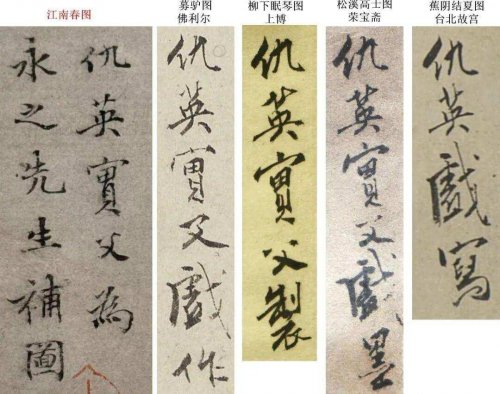 江南春图
仇英實父為
永之先生補圖
募驴图
佛利尔
仇英實父戲作
柳下眠琴图
上博
仇英實父製
松溪高士图
荣宝斋
仇英實父戲墨
蕉阴结夏图
台北故宫
仇英戲寫